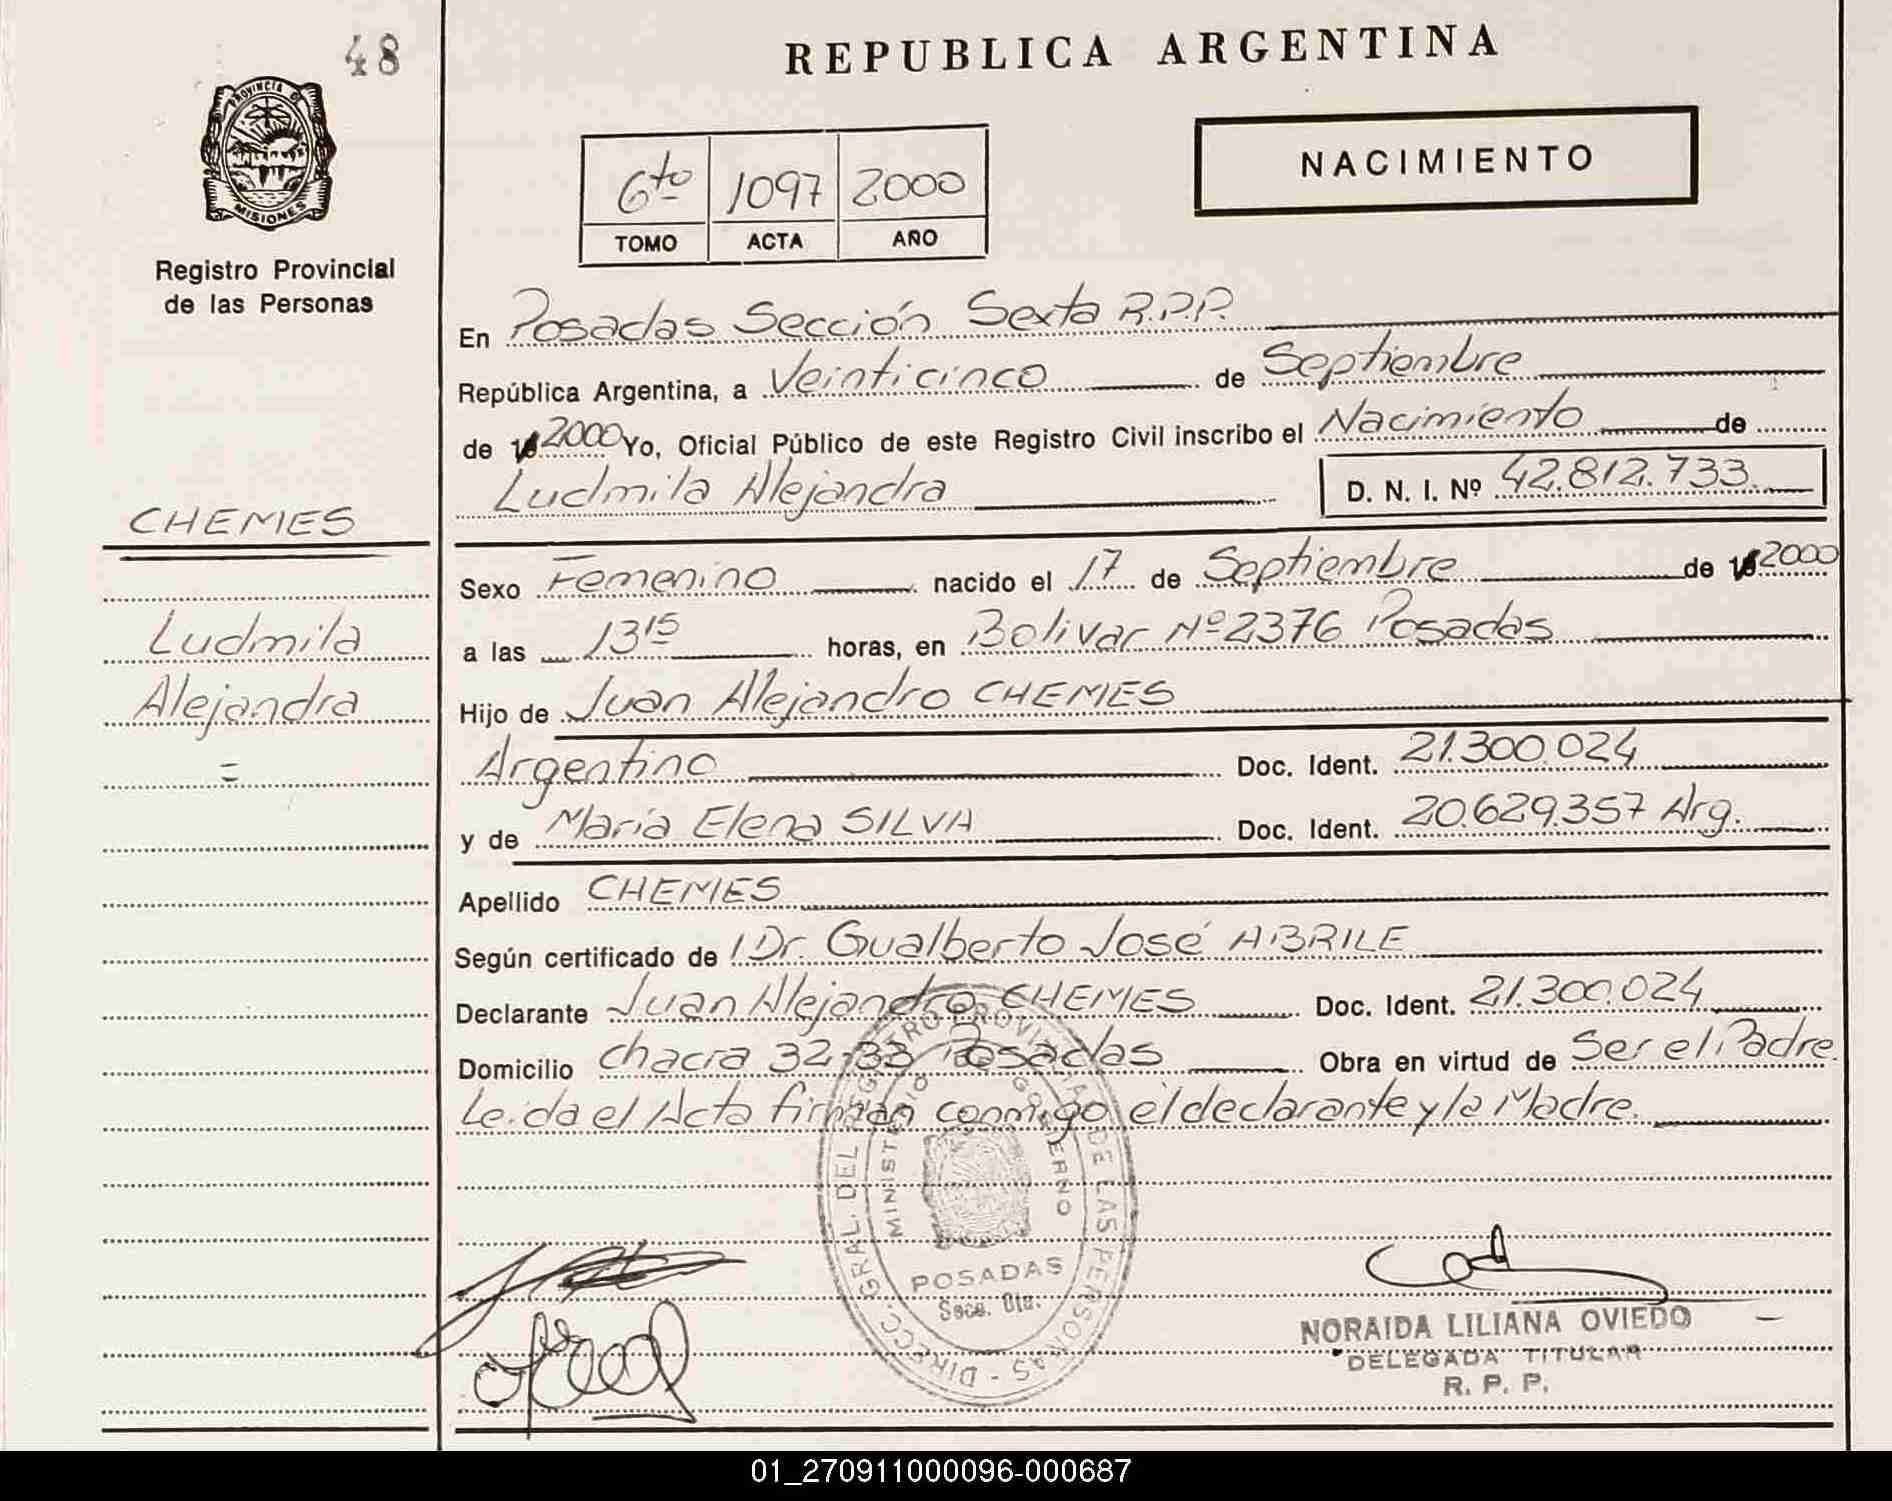 48
REPUBLICA ARGENTINA
PROVINCIA D
MISIONES
Registro Provincial
de las Personas
NACIMIENTO
6to 1097 2000
TOMO ACTA AÑO
En Posadas Sección Sexta R.P.P.
República Argentina, a Veinticinco de Septiembre
de 2000 Yo, Oficial Público de este Registro Civil inscribo el Nacimiento de
Ludmila Alejandra D. N. I. Nº 42.812.733
CHEMES
Ludmila
Alejandra
=
Sexo Femenino nacido el 17 de Septiembre de 2000
a las 13 15 horas, en Bolivar Nº 2376 Posadas
Hijo de Juan Alejandro CHEMES
Argentino Doc. Ident. 21.300.024
y de Maria Elena SILVA Doc. Ident. 20.629.357 Arg.
Apellido CHEMES
Según certificado de Dr. Gualberto José ABRILE
Declarante Juan Alejandro CHEMES Doc. Ident. 21.300.024
Domicilio chacra 32-33 Posadas Obra en virtud de Ser el Padre.
Leida el Acta firman conmigo el declarante y la Madre.
DIRECC. GRAL. DEL REGISTRO PROVINCIAL DE LAS PERSONAS -
MINISTERIO DE GOBIERNO
POSADAS
Secc. 6ta.
NORAIDA LILIANA OVIEDO
DELEGADA TITULAR
R. P. P.
01_270911000096-000687